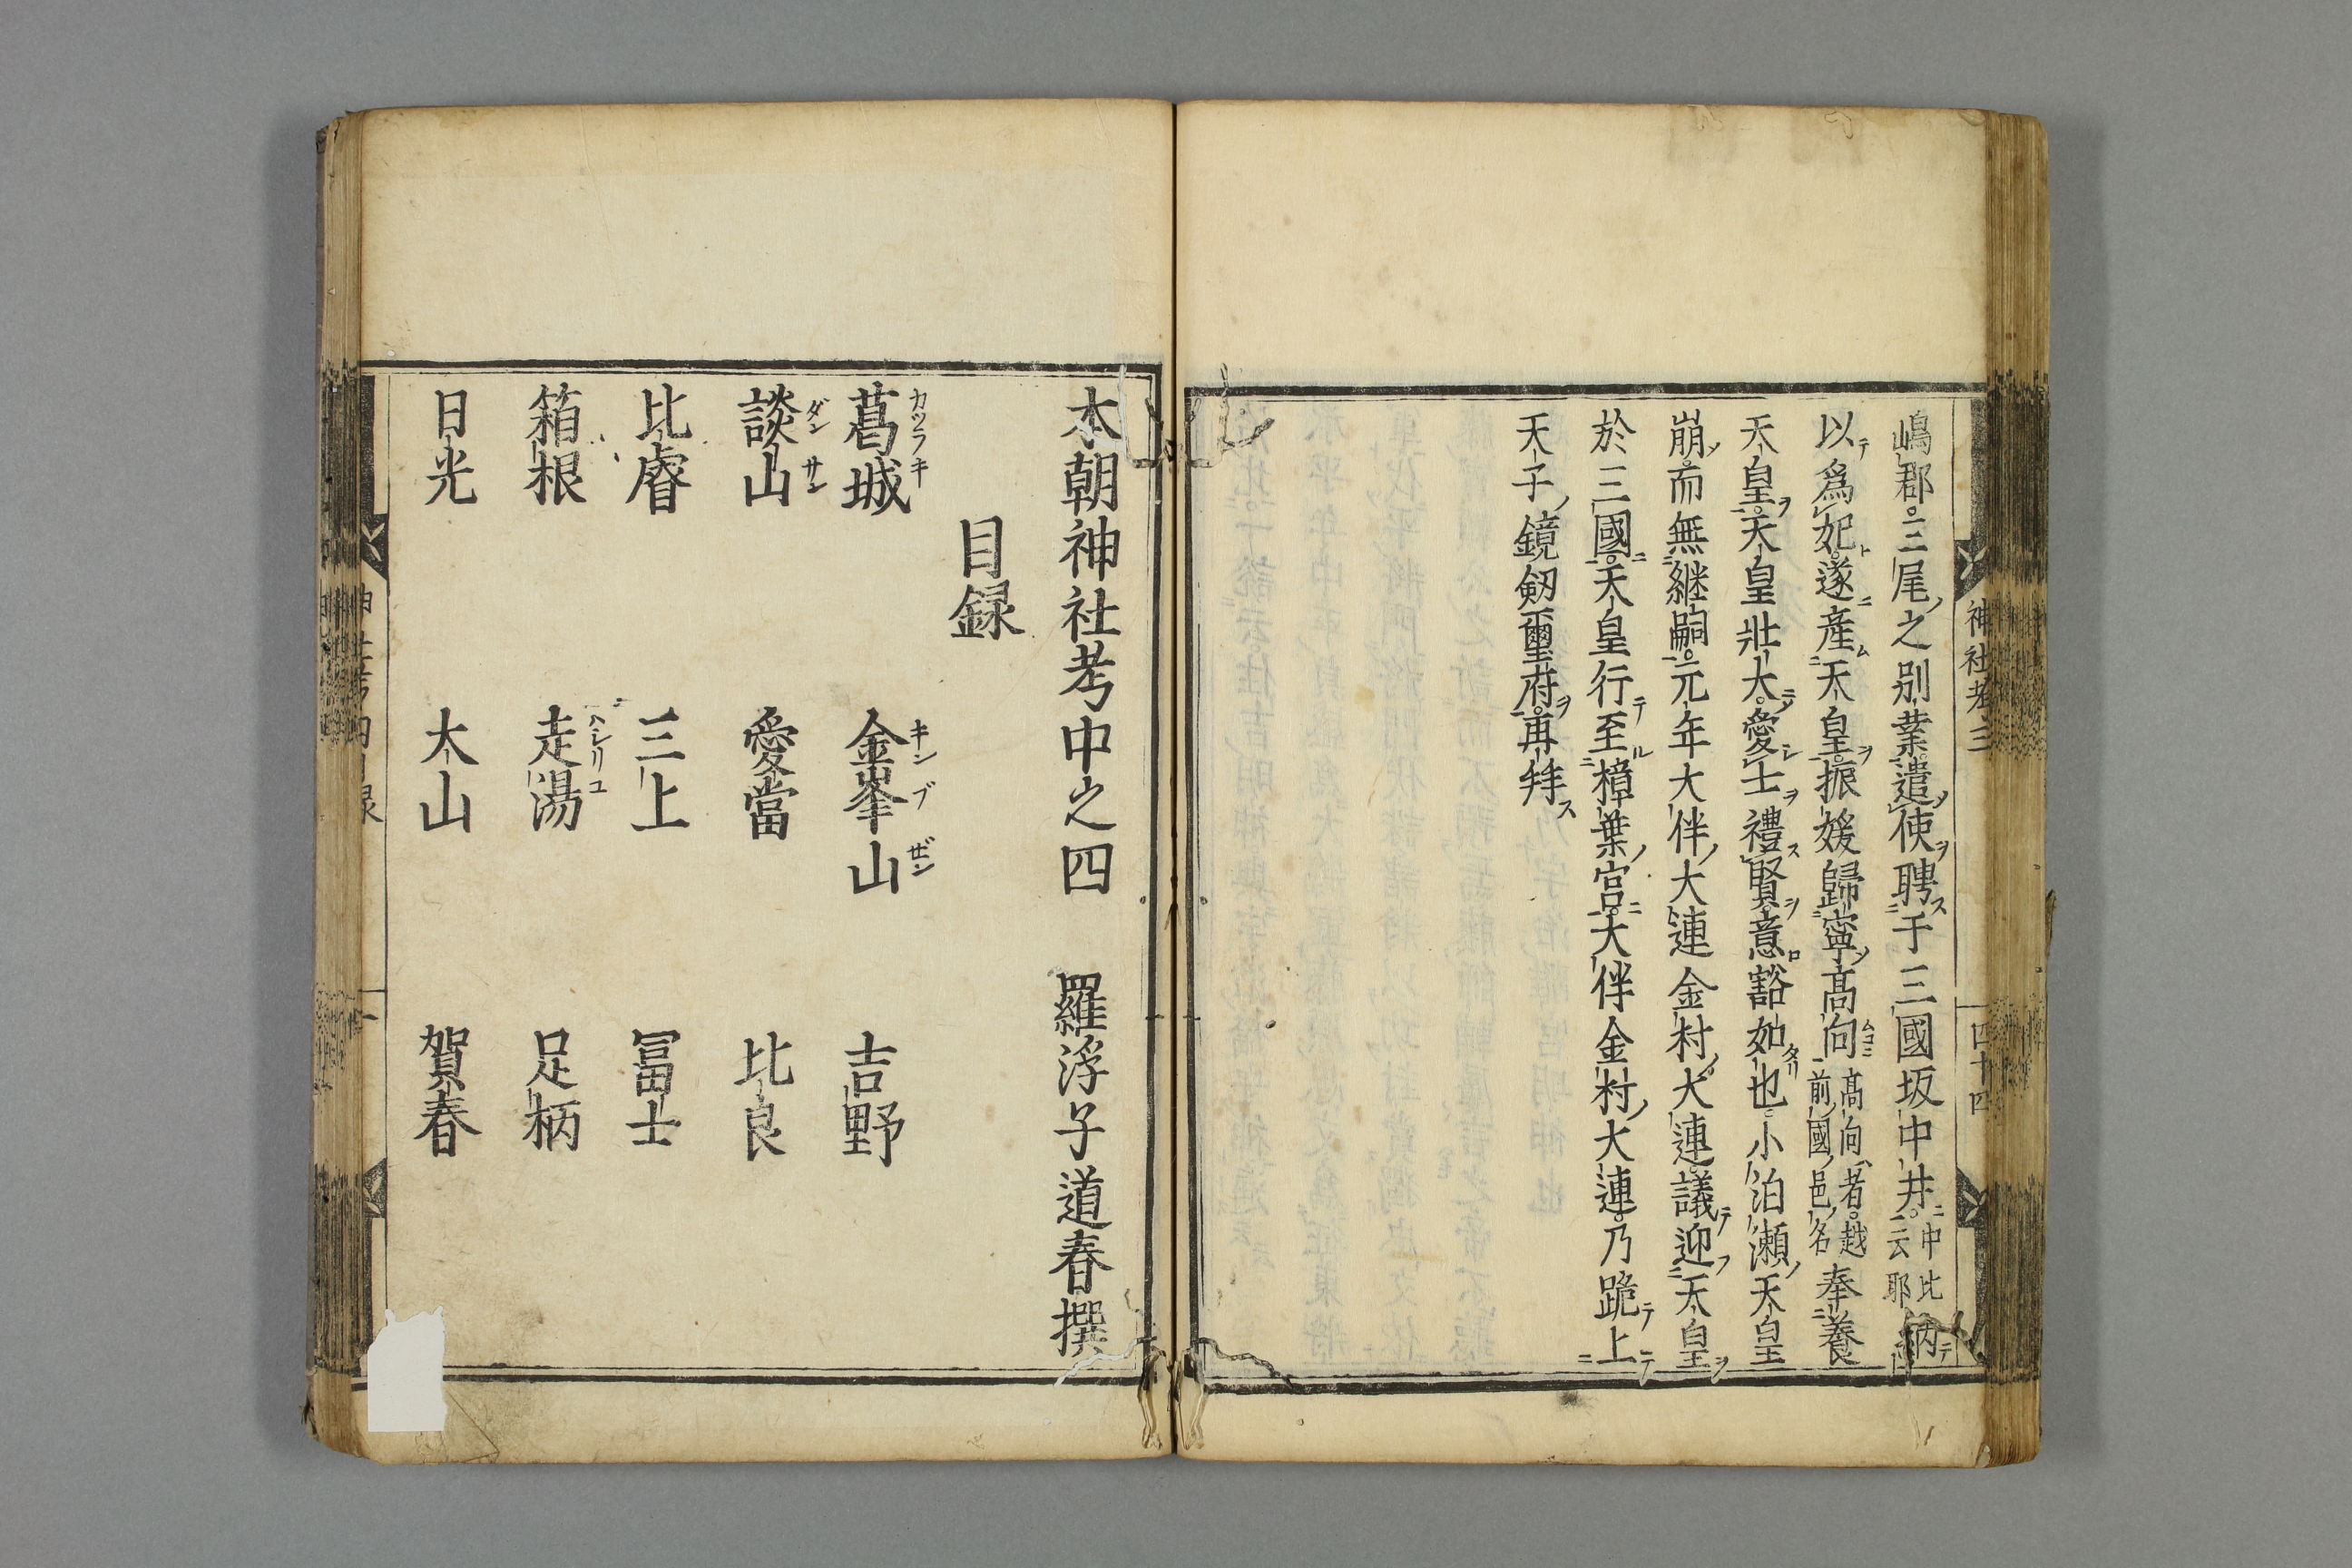 嶋郡三尾之別業遣使聘于三國坂中井中此云那納
以爲妃遂産天皇振媛歸寧高向高向者越前國邑名奉養
天皇天皇壯大愛士禮賢意豁如也小泊瀬天皇
崩而無継嗣元年大伴大連金村大連議迎天皇
於三國天皇行至樟葉宮大伴金村大連乃跪上
天子鏡剱璽府再拝
神社考三
四十四
本朝神社考中之四 羅浮子道春撰
目録
葛城カツラキ 金峯山キンブゼン 吉野
談山ダンサン 愛當 比良
比睿 三上 冨士
箱根 走湯ハシリユ 足柄
日光 大山 賀春